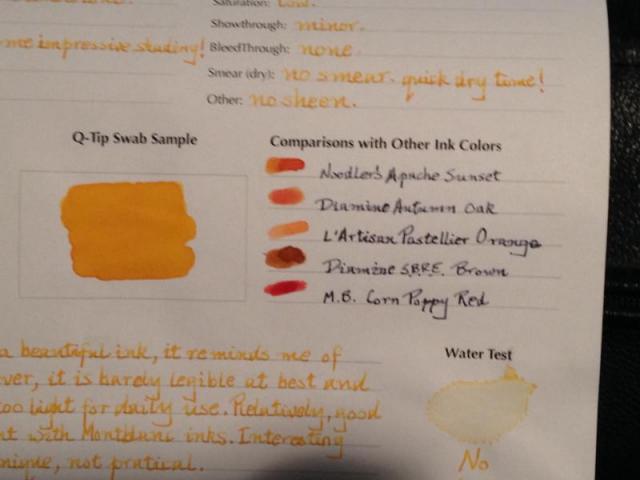 Saturation: Low.
Showthrough: minor.
me impressive shading!
BleedThrough: none.
Smear (dry): no smear. quick dry time!
Other: no sheen.
Q-Tip Swab Sample
Comparisons with Other Ink Colors
Noodler's Apache Sunset
Diamine Autumn Oak
L'Artisan Pastellier Orange
Diamine S.B.R.E. Brown
M.B. Corn Poppy Red
a beautiful ink, it reminds me of
ver, it is barely legible at best and
too light for daily use. Relatively, good
nt with Montblanc inks. Interesting
nique, not pratical.
Water Test
No